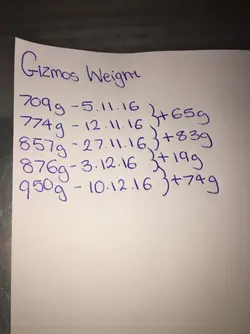 Gizmos Weight
709g - 5.11.16
+65g
774g - 12.11.16
+83g
857g - 27.11.16
+19g
876g - 3.12.16
+74g
950g - 10.12.16